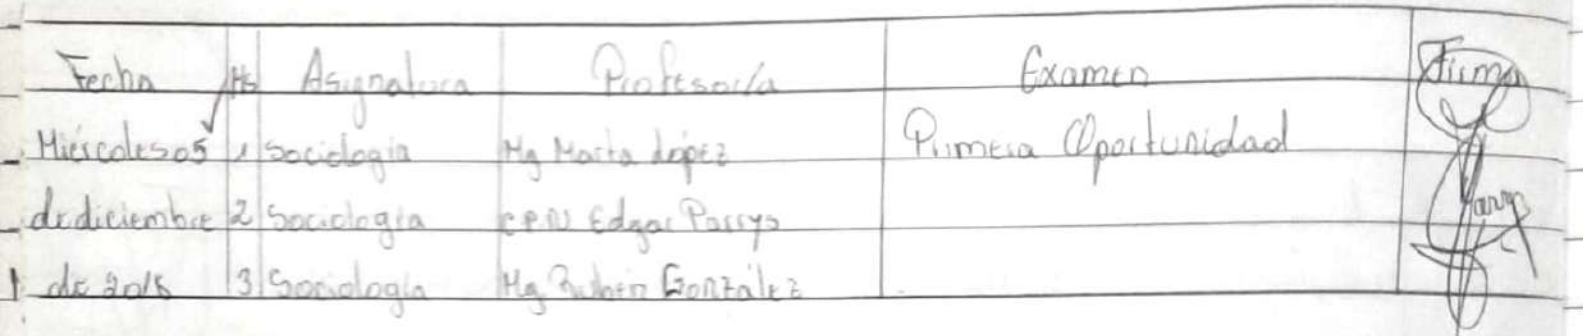 Fecha Hs Asignatura Profesor/a Examen Firma
Miércoles 05 1 Sociología Mg Marta López Primera Oportunidad
de diciembre 2 Sociología C.P.N Edgar Parrys
de 2018 3 Sociología Mg Rubén González